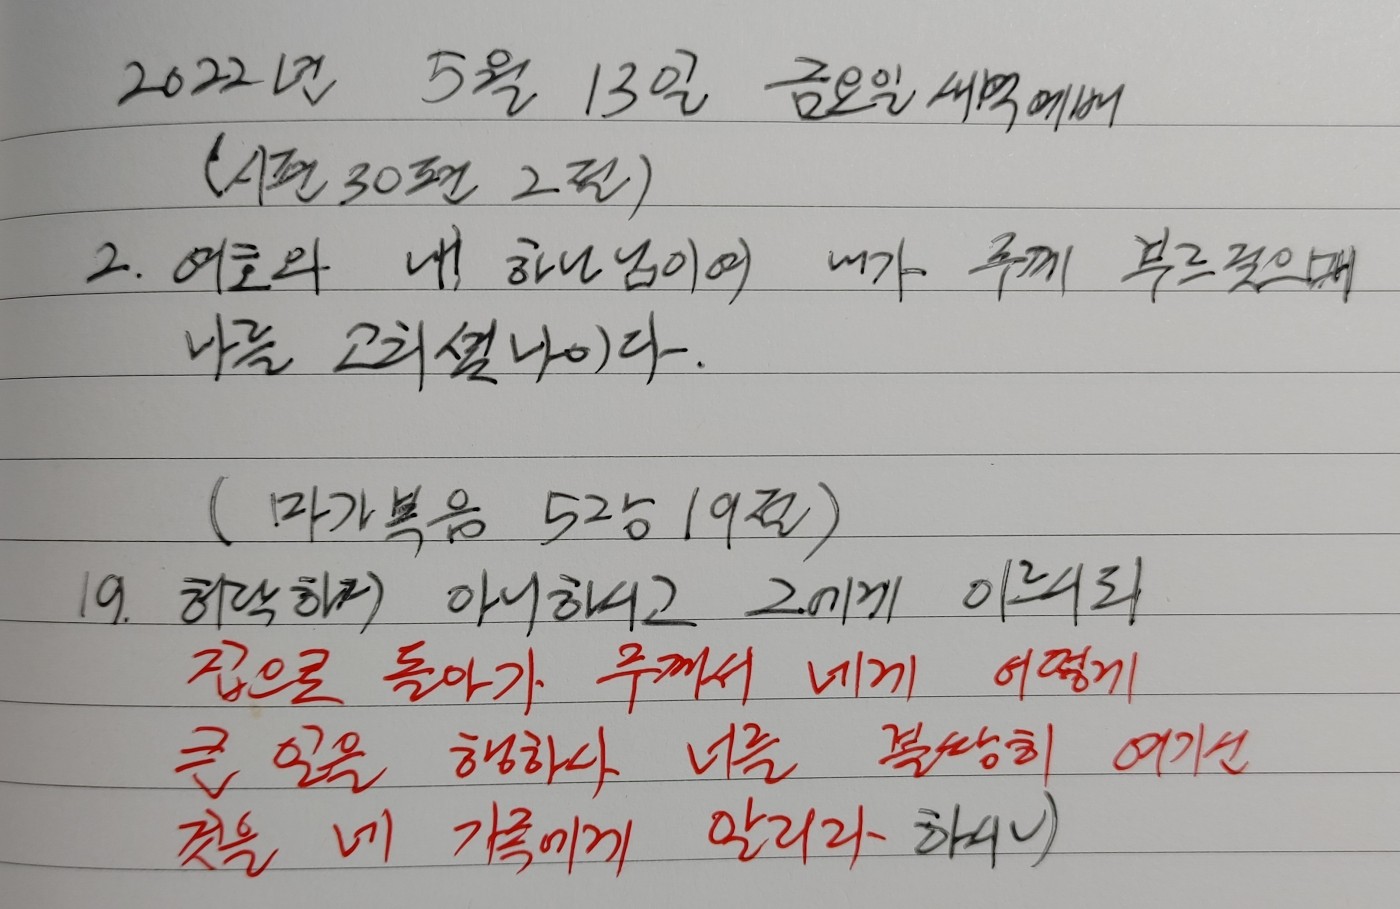 2022년 5월 13일 금요일 새벽예배
(시편 30편 2절)
2. 여호와 내 하나님이여 내가 주께 부르짖으매
나를 고치셨나이다.
(마가복음 5장 19절)
19. 허락하지 아니하시고 그에게 이르시되
집으로 돌아가 주께서 네게 어떻게
큰 일을 행하사 너를 불쌍히 여기신
것을 네 가족에게 알리라 하시니